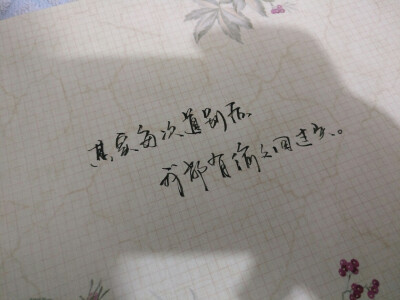 其实每次道别后
我都有偷偷回过头。